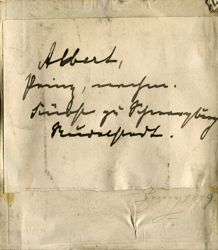 Albert,
Prinz, nachm.
Fürst zu Schwarzburg
Rudolstadt.